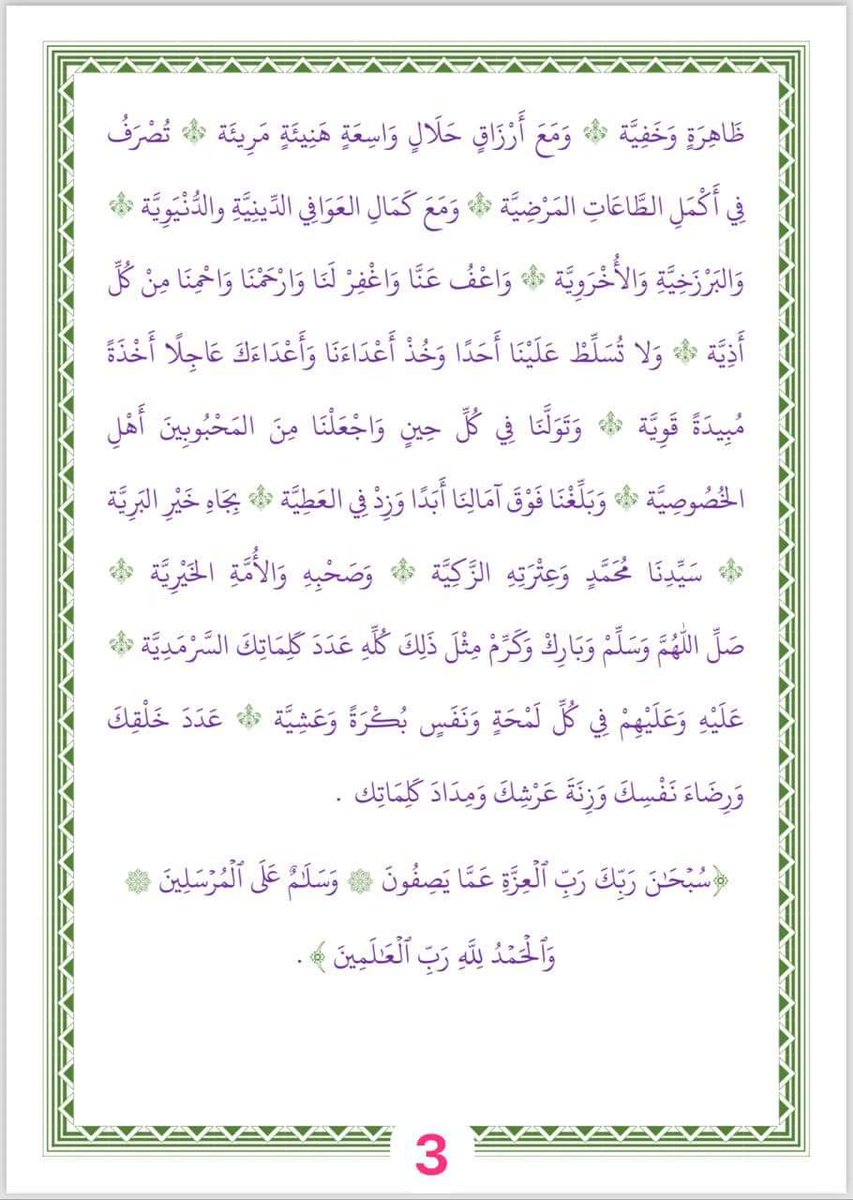 ظَاهِرَةٍ وَخَفِيَّة ۞ وَمَعَ أَرْزَاقٍ حَلَالٍ وَاسِعَةٍ هَنِيئَةٍ مَرِيئَة ۞ تُصْرَفُ
فِي أَكْمَلِ الطَّاعَاتِ المَرْضِيَّة ۞ وَمَعَ كَمَالِ العَوَافِي الدِّينِيَّةِ والدُّنْيَوِيَّة ۞
وَالبَرْزَخِيَّةِ وَالأُخْرَوِيَّة ۞ وَاعْفُ عَنَّا وَاغْفِرْ لَنَا وَارْحَمْنَا وَاحْمِنَا مِنْ كُلِّ
أَذِيَّة ۞ وَلا تُسَلِّطْ عَلَيْنَا أَحَدًا وَخُذْ أَعْدَاءَنَا وَأَعْدَاءَكَ عَاجِلًا أَخْذَةً
مُبِيدَةً قَوِيَّة ۞ وَتَوَلَّنَا فِي كُلِّ حِينٍ وَاجْعَلْنَا مِنَ المَحْبُوبِينَ أَهْلِ
الخُصُوصِيَّة ۞ وَبَلِّغْنَا فَوْقَ آمَالِنَا أَبَدًا وَزِدْ فِي العَطِيَّة ۞ بِجَاهِ خَيْرِ البَرِيَّة
۞ سَيِّدِنَا مُحَمَّدٍ وَعِتْرَتِهِ الزَّكِيَّة ۞ وَصَحْبِهِ وَالأُمَّةِ الخَيْرِيَّة ۞
صَلِّ اللَّهُمَّ وَسَلِّمْ وَبَارِكْ وَكَرِّمْ مِثْلَ ذَلِكَ كُلِّهِ عَدَدَ كَلِمَاتِكَ السَّرْمَدِيَّة ۞
عَلَيْهِ وَعَلَيْهِمْ فِي كُلِّ لَمْحَةٍ وَنَفَسٍ بُكْرَةً وَعَشِيَّة ۞ عَدَدَ خَلْقِكَ
وَرِضَاءَ نَفْسِكَ وَزِنَةَ عَرْشِكَ وَمِدَادَ كَلِمَاتِك .
﴿سُبْحَٰنَ رَبِّكَ رَبِّ ٱلْعِزَّةِ عَمَّا يَصِفُونَ ۞ وَسَلَٰمٌ عَلَى ٱلْمُرْسَلِينَ ۞
وَٱلْحَمْدُ لِلَّهِ رَبِّ ٱلْعَٰلَمِينَ ﴾ .
3